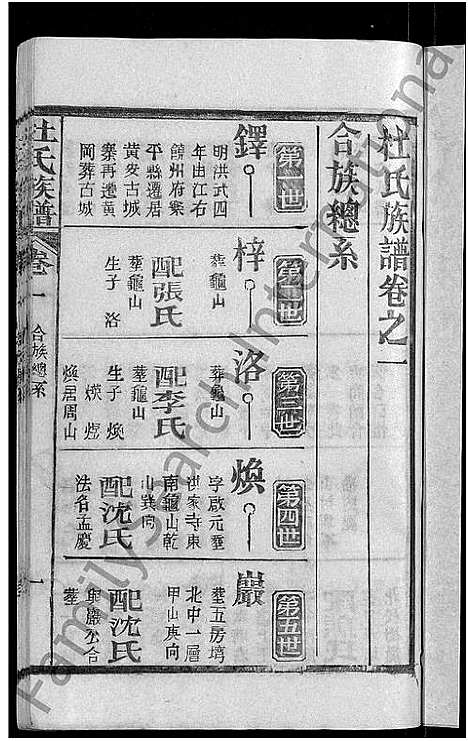 杜氏族譜卷之一
合族總系
第一世
鐸
明洪武四
年由江右
饒州府樂
平縣遷居
黃安古城
寨再遷黃
岡葬古城
第二世
梓
葬龜山
配張氏
葬龜山
生子 洛
第三世
洛
葬龜山
配李氏
葬龜山
生子 煥
煐 煜
煥居周山
第四世
煥
字啟元葬
洪家寺東
南龜山乾
山巽向
配沈氏
法名孟慶
第五世
巖
葬五房塆
北中一層
甲山庚向
配沈氏
與巖公合
葬
杜氏族譜
卷一
合族總系
一
FamilySearch International